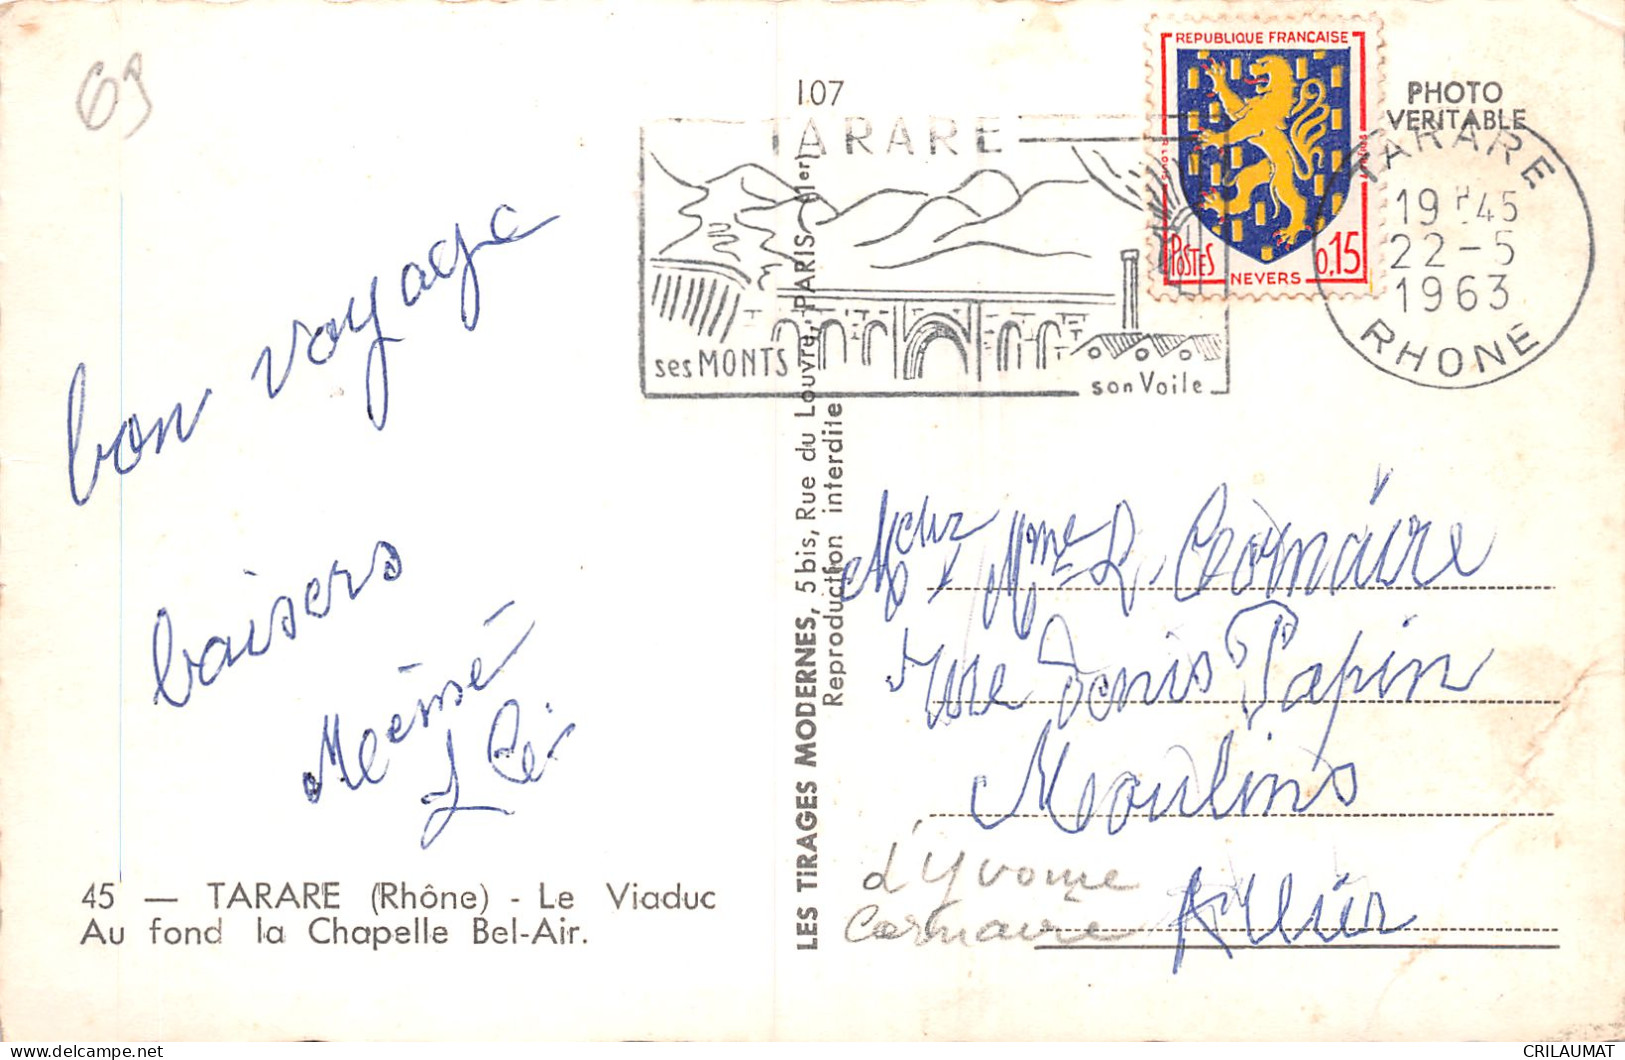 69
107
TARARE
ses MONTS
son Voile
REPUBLIQUE FRANCAISE
POSTES
0,15
NEVERS
PHOTO
VERITABLE
TARARE
19 H45
22-5
1963
RHONE
bon voyage
baisers
Mémé
45 — TARARE (Rhône) - Le Viaduc
Au fond la Chapelle Bel-Air.
LES TIRAGES MODERNES, 5 bis, Rue du Louvre, PARIS (1er)
Reproduction interdite
Mme L. Cornaire
rue Denis Papin
Moulins
Allier
d'Yvonne
Cornaire
CRILAUMAT